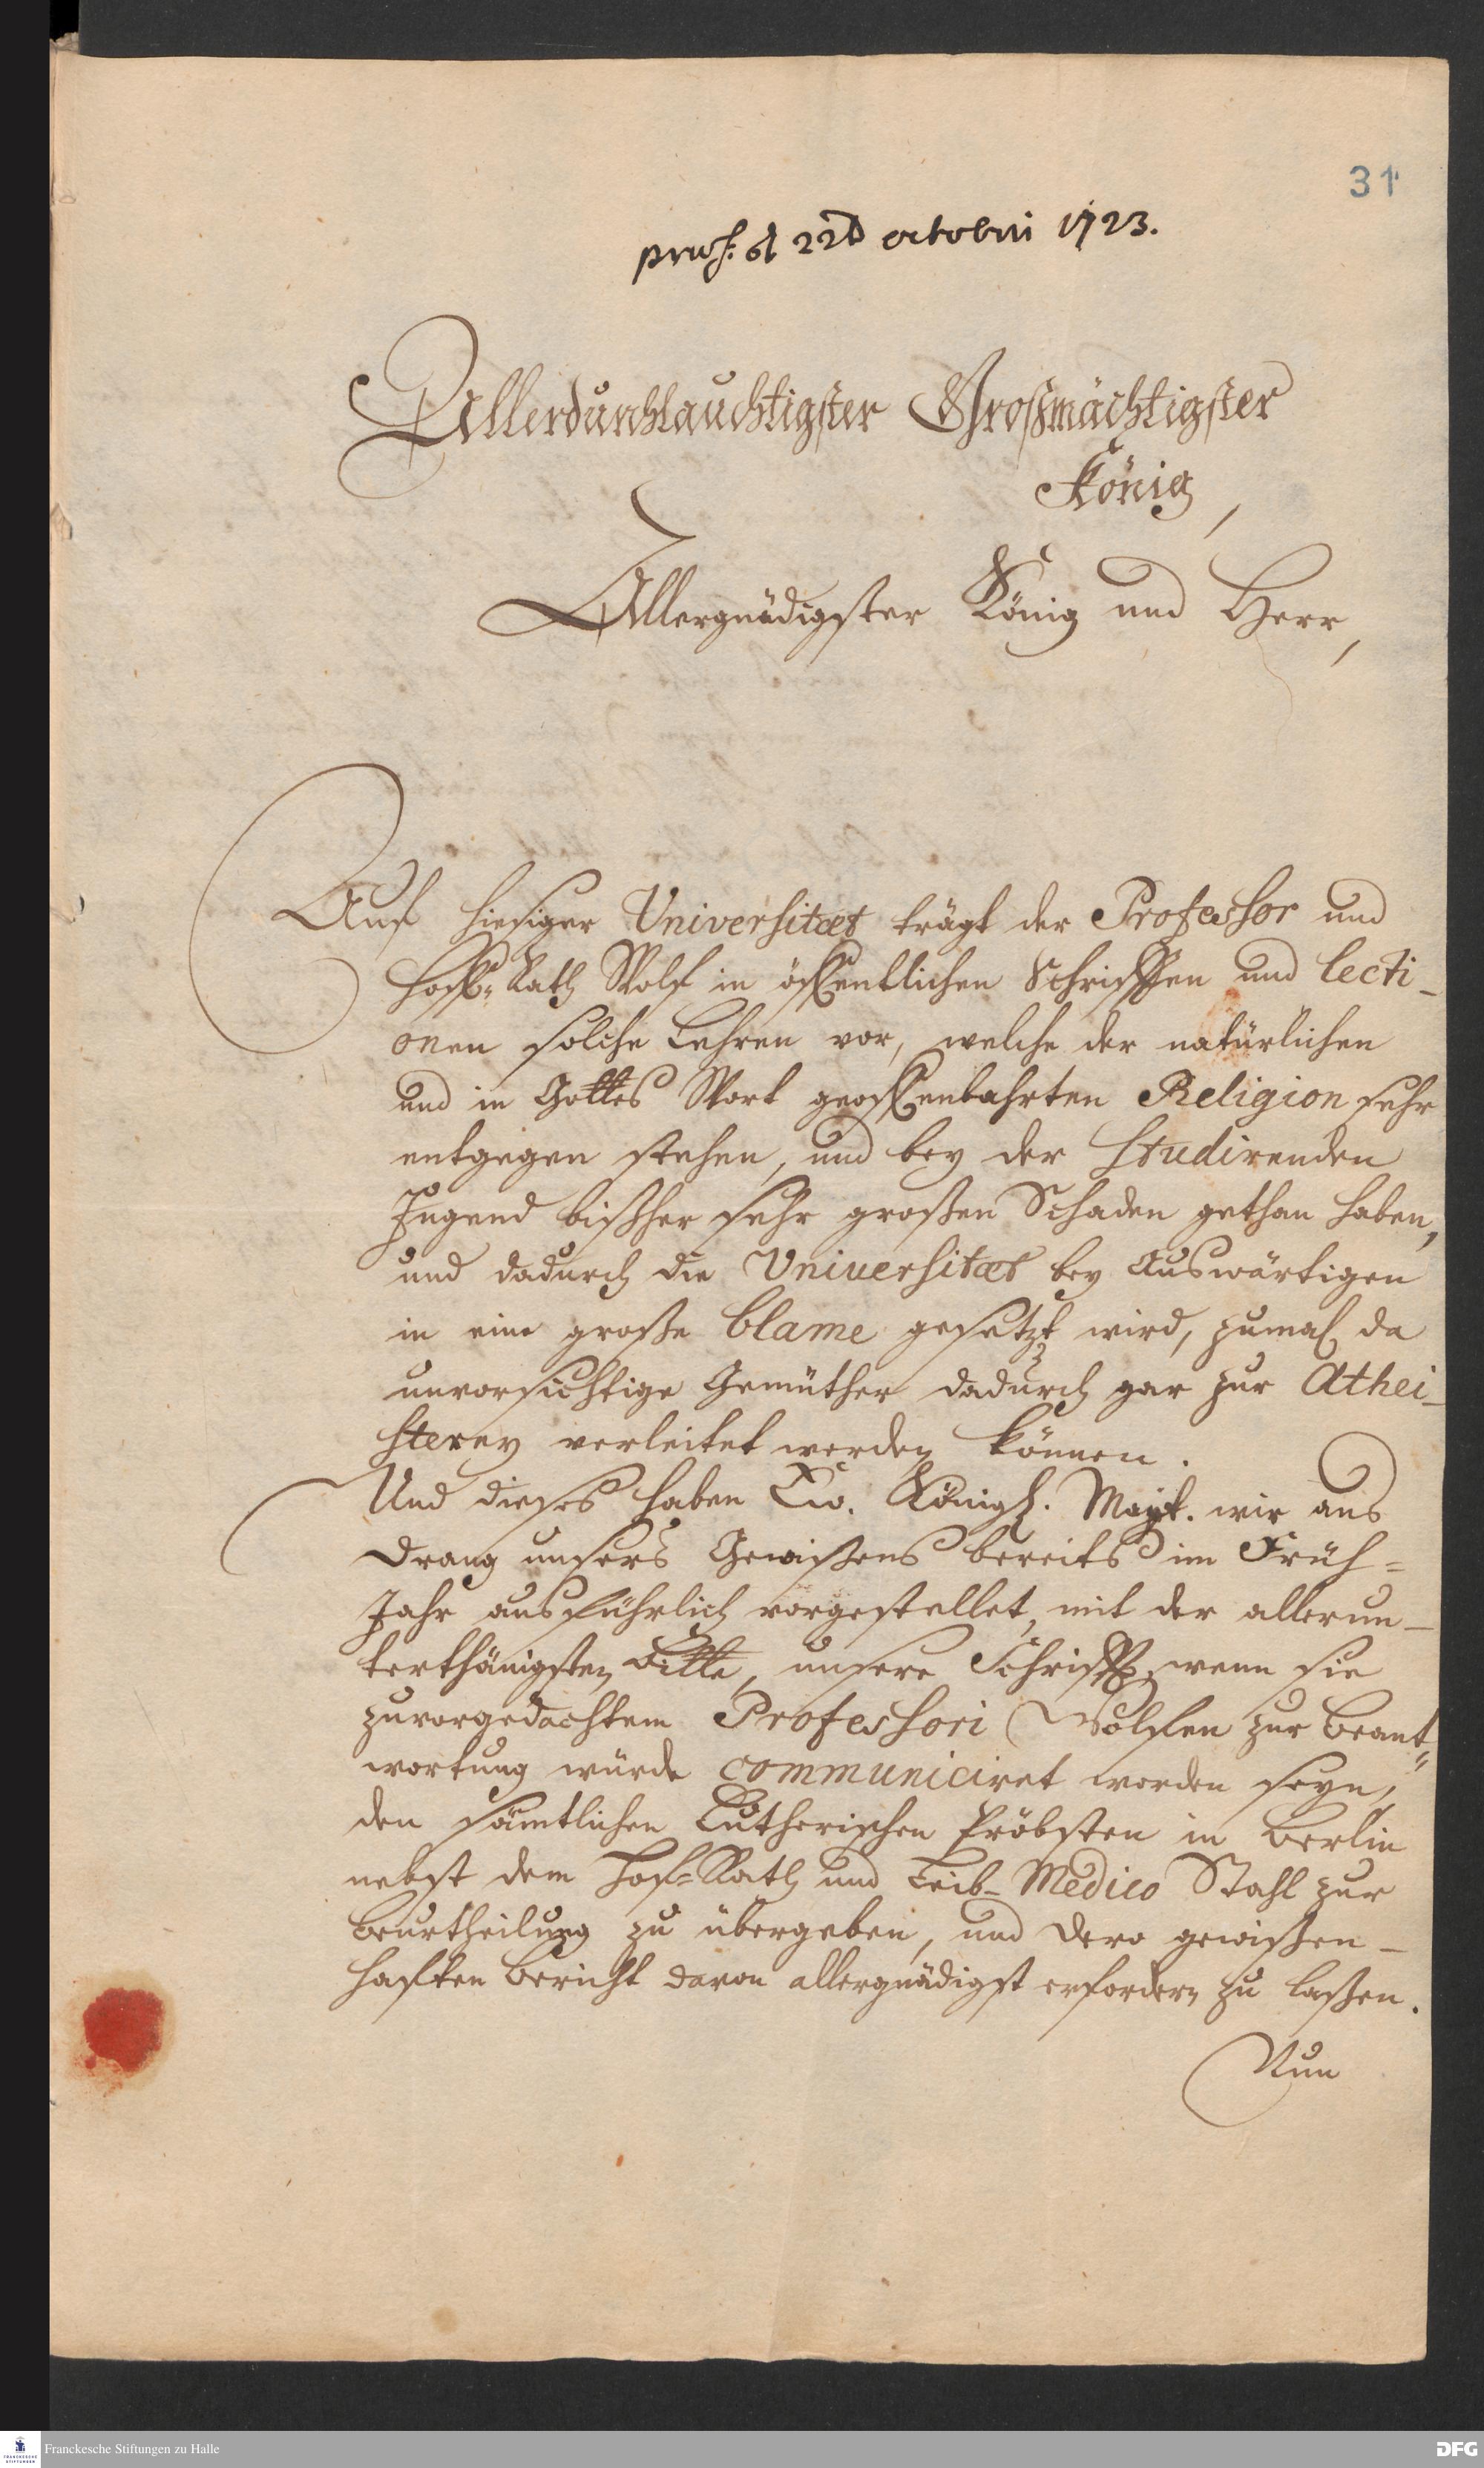 31
præs. d. 22 d octobris 1723.
Allerdurchlauchtigster Großmächtigster
König,
Allergnädigster König und Herr,
Auf hiesiger Universitæt trägt der Professor und
Hoff-Rath Wolf in öffentlichen Schrifften und lecti-
onen solche Lehren vor, welche der natürlichen
und in Gottes Wort geoffenbahrten Religion sehr
entgegen stehen, und bey der Studirenden
Jugend bißher sehr großen Schaden gethan haben,
und dadurch die Universitæt bey Auswärtigen
in eine große blame gesetzt wird, zumal da
unvorsichtige Gemüther dadurch gar zur Athei-
sterey verleitet werden können.
Und dieses haben Ew. Königl. Mayt. wir aus
Drang unsers Gewißens bereits im Früh-
Jahr ausführlich vorgestellet, mit der allerun-
terthänigsten Bitte, unsere Schrifft, wenn sie
zuvorgedachtem Professori Wolfen zur Beant-
wortung würde communiciret worden seyn,
den sämtlichen Lutherischen Pröbsten in Berlin
nebst dem Hof-Rath und Leib-Medico Stahl zur
Beurtheilung zu übergeben, und dero gewißen-
hafften Bericht davon allergnädigst erfordern zu laßen.
Nun
FRANCKESCHE STIFTUNGEN
Franckesche Stiftungen zu Halle
DFG